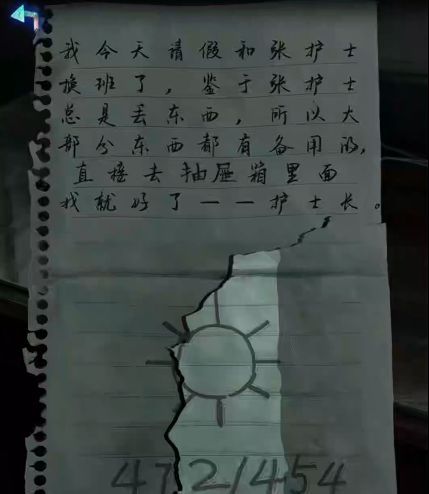 我今天请假和张护士
换班了，鉴于张护士
总是丢东西，所以大
部分东西都有备用的，
直接去抽屉箱里面
找就好了——护士长。
4721454